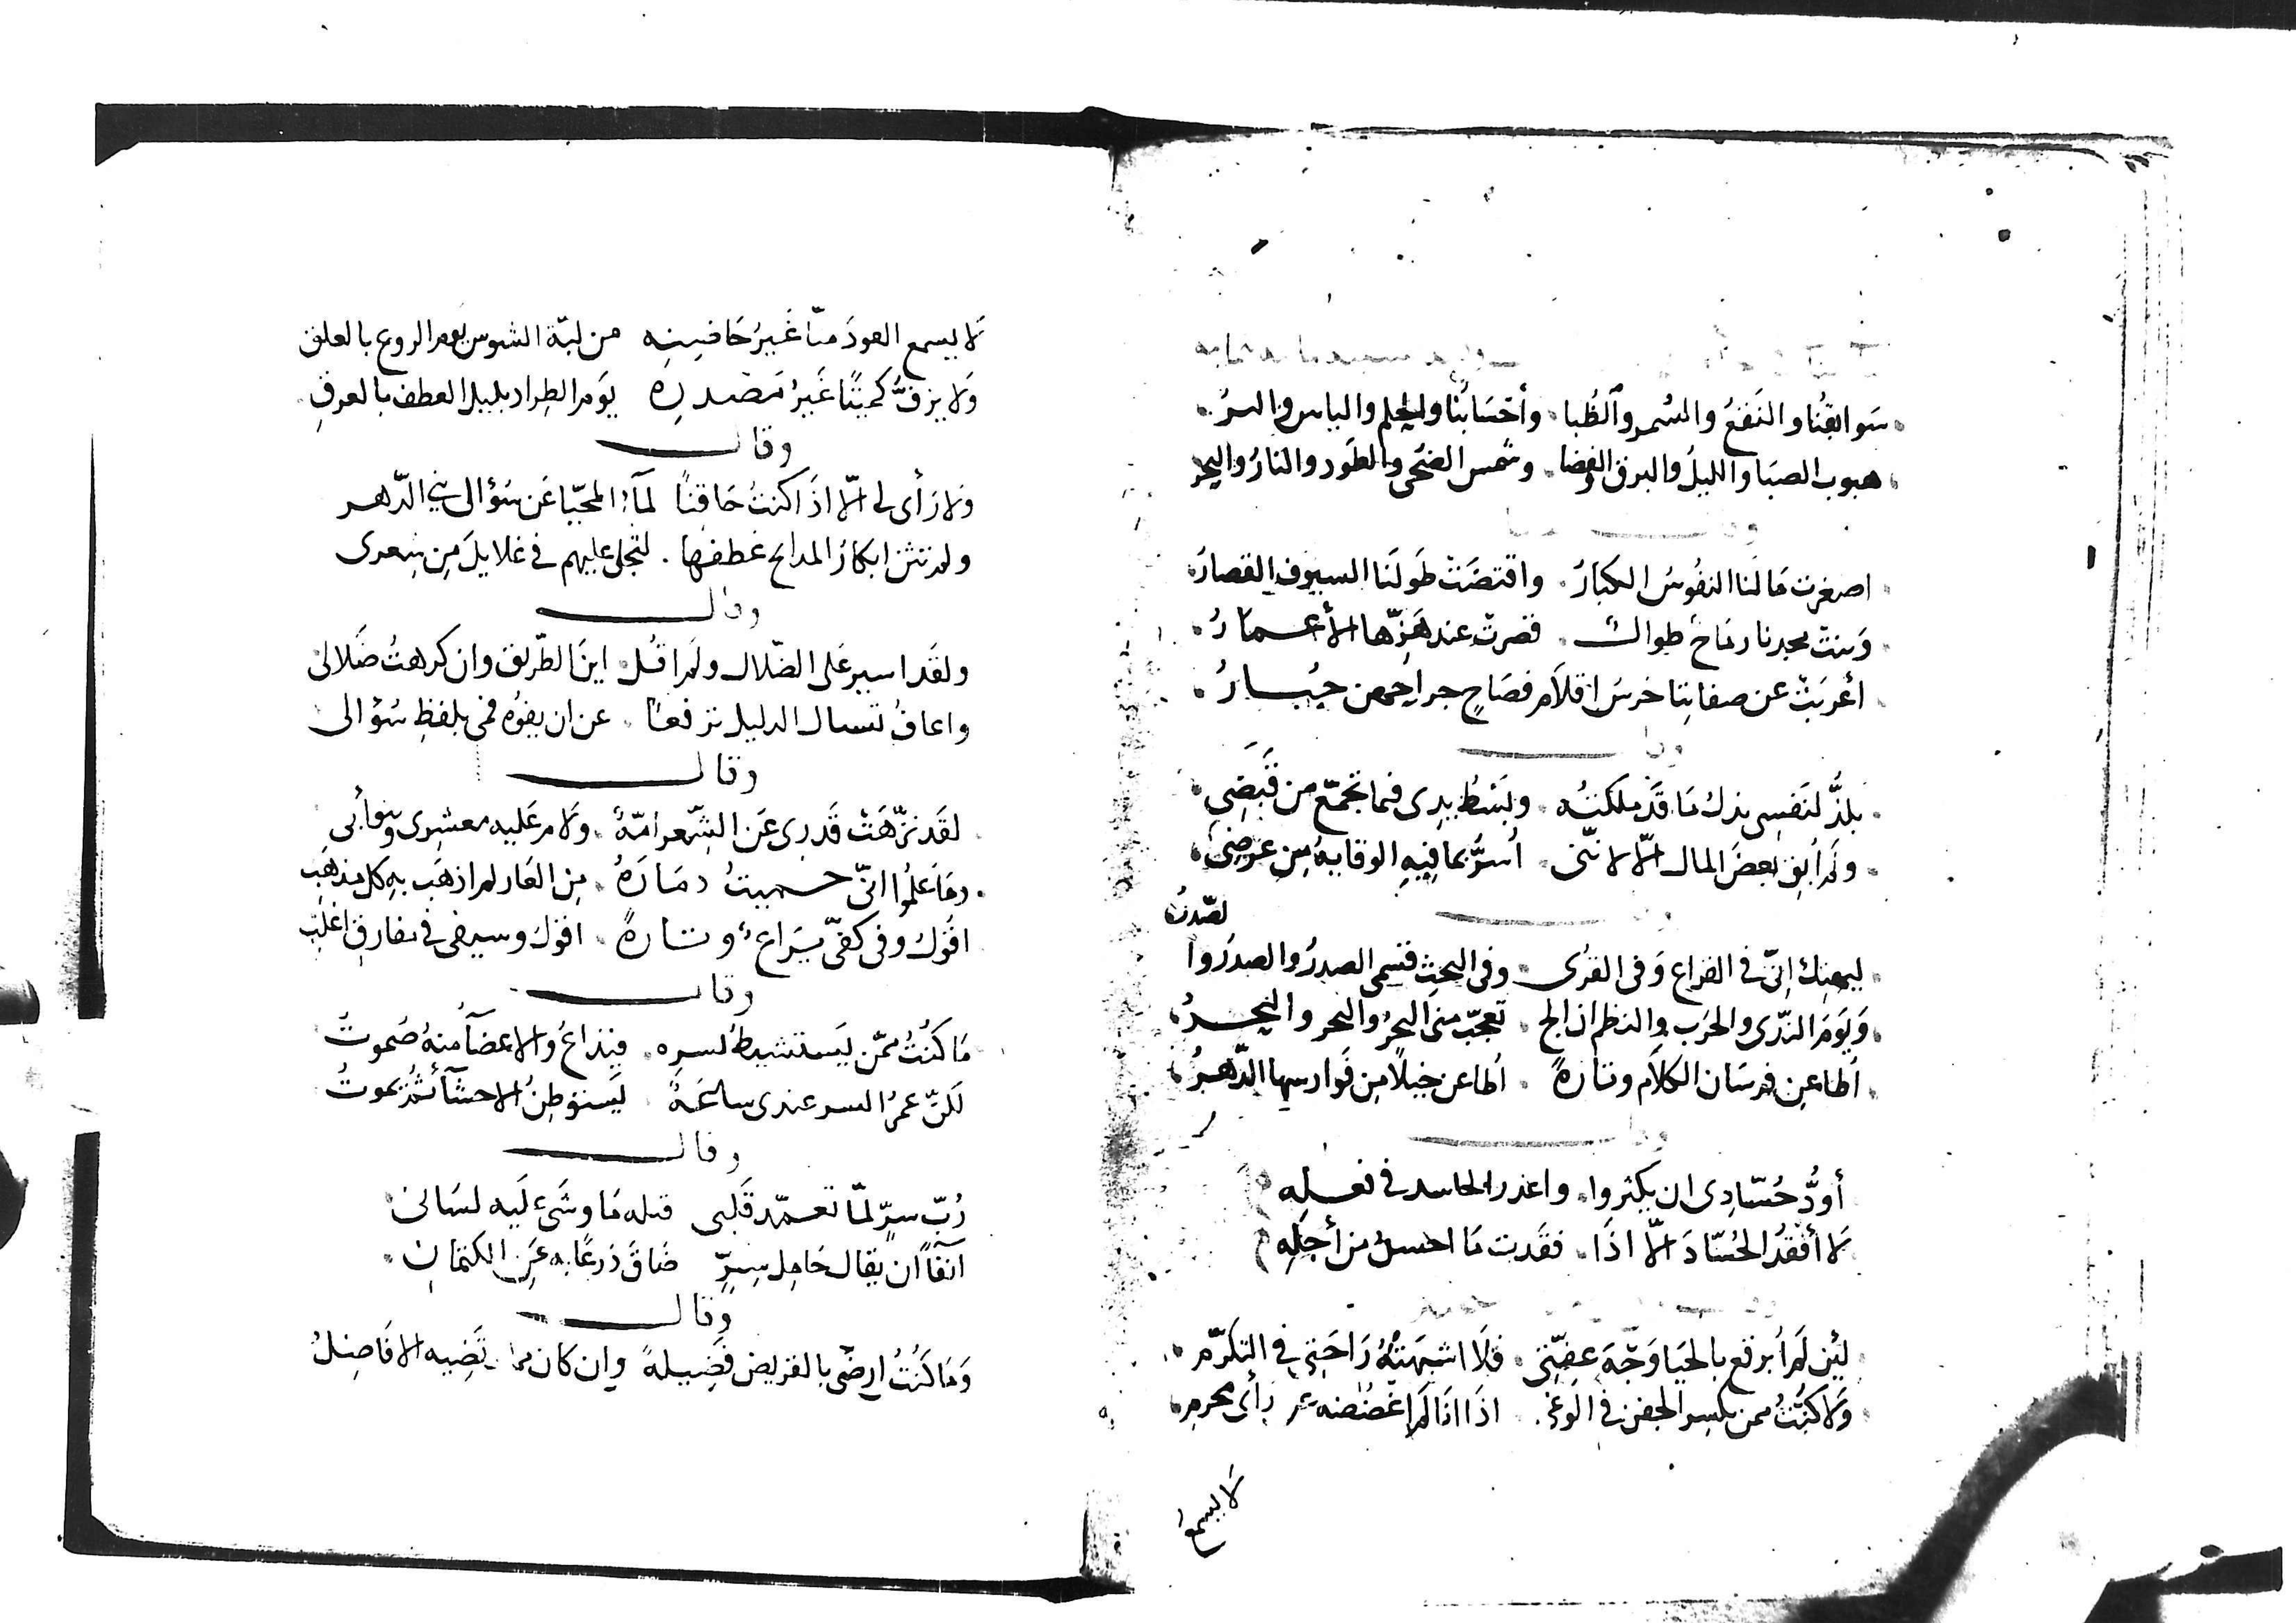 سَوابقُنا والنَقعُ والسُمر والظُبا وأحسَابُنا والحِلم والباس والبرُ
هبوب الصبَا والليلُ والبرق والفضا وشمس الضحى والطَود والنارُ والبحر
اصغرت مَا لنا النفُوسُ الكبارُ واقتضَت طَولَنا السيوف القصارُ
وَبنت مجدنا رمَاحُ طوالٌ قصرت عند هَزّها الأعمَارُ
أعرَبَت عن صفاتِنا خرسُ اقلاَم فصَاحٍ جراحهن جُبَارُ
وقال
يلذُّ لنَفسِى بذلُ مَا قَد ملكتُه وبَسطُ يدِى فيما تجمّع من قَبضِي
ولَم أبقِ بعضَ المال الّا لانّنى اُسَرُّ بما فيهِ الوقايةُ مِن عرضِى
ليهنك انّى في القراع وَفى القرَى وفى البحثِ قسمى الصدرُ والصدرُ والصدرُ
وَيَومَ الندَى والحَرب والنظم ان الج تعجّب منى البحرُ والبحر والبحرُ
اُطاعِن فرسَان الكلاَم وتارَةً اُطاعن خيلًا مِن فَوارسها الدّهرُ
أودُّ حُسّادِى ان يكثروا واعذر الحاسد في فعلهِ
لَا أفقدُ الحُسّادَ الّا اذَا فقَدت مَا احسدُ من أجلهِ
لئِن لَم أُبرقع بالحَيا وَجهَ عِفّتى فلَا اشبهَتهُ رَاحَتِى في التكرّم
وَلَا كنتُ ممن يكسِر الجفن في الوغى اذَا انَا لَم اغضضه عن رأى محرم
لَا يسمع
لَا يسمع العودَ منّا غَيرُ خَاضبِهِ من لبّة الشوس يوم الروع بالعلق
وَلا يزفُّ كميتًا غَيرُ مَصدرِهِ يَوم الطِراد بليل العطف بالعرقِ
وقال
وَلا رَأى لى الّا اذَا كنتُ حَاقنًا لمآء المحيّا عَن سُؤالى بني الدّهر
ولم تثن ابكارُ المدايح عطفها لتجلى عليهم في غلايلَ مِن شعرى
وقال
ولقَد اسير عَلى الضّلال ولَم اقُل اينَ الطّريق وان كرهتُ ضَلالى
واعافُ تسال الدليل ترفعًا عن ان يفوُه فمى بلفظِ سُؤالى
وقال
لقَد نزّهَت قَدرِى عَن الشّعر امّةٌ ولَام عَليه معشرِى وبنو أبى
ومَا عَلمُوا انّى حميتُ ذمَارَهُ مِن العَار لم اذهَب به كل مذهَبِ
اقُولُ وفى كفىّ يَراعٌ وتارةً اقولُ وسيفى في مفارق اغلبِ
وقال
مَا كنُتُ ممّن يَستشيط لسره فيُذاعُ والاعضَآ منهُ صُموتُ
لَكنّ عمرُ السر عندى ساعَةٌ يَستوطِنُ الاحشَآء ثُمّ يموتُ
وقال
رُبّ سِرٍّ لمّا تعمّد قَلبى قبله مَا وشَى عَلَيه لسَانى
آنفًا أن يقال حَامِل سِرٍّ ضَاقَ ذَرعًا به عَنِ الكتمانِ
وقال
وَمَا كُنتُ ارضَى بالقريض فَضِيلةً وان كان مما ترتَضِيه الافَاضِلُ